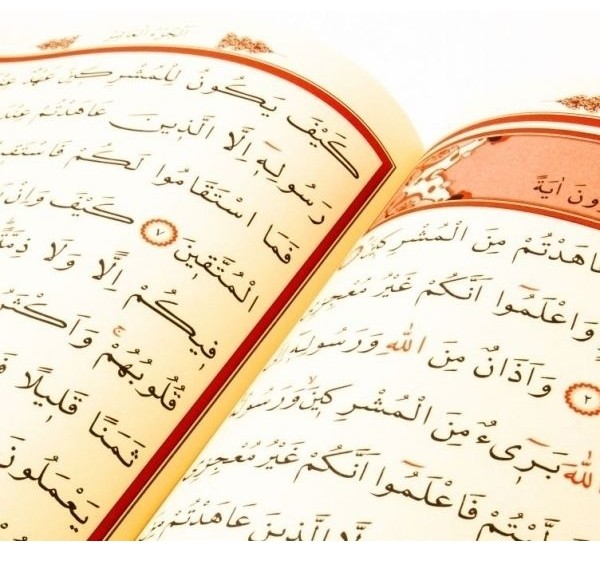 اٰيَةً
عَاهَدْتُمْ مِنَ الْمُشْرِكٖينَ
وَاعْلَمُٓوا اَنَّكُمْ غَيْرُ مُعْجِزِي
٢ وَاَذَانٌ مِنَ اللّٰهِ وَرَسُولِهٖٓ
اللّٰهَ بَرٖٓيءٌ مِنَ الْمُشْرِكٖينَ وَرَسُولُهُ
فَاعْلَمُٓوا اَنَّكُمْ غَيْرُ مُعْجِزِي
اِلَّا الَّذٖينَ عَاهَدْتُمْ
الجزء العاشر
كَيْفَ يَكُونُ لِلْمُشْرِكٖينَ عَهْدٌ
رَسُولِهٖٓ اِلَّا الَّذٖينَ عَاهَدْتُمْ عِنْدَ
فَمَا اسْتَقَامُوا لَكُمْ
الْمُتَّقٖينَ ٧ كَيْفَ وَاِنْ
فٖيكُمْ اِلًّا وَلَا ذِمَّةً
قُلُوبُهُمْ وَاَكْثَرُ
ثَمَنًا قَلٖيلًا
يَعْمَلُونَ